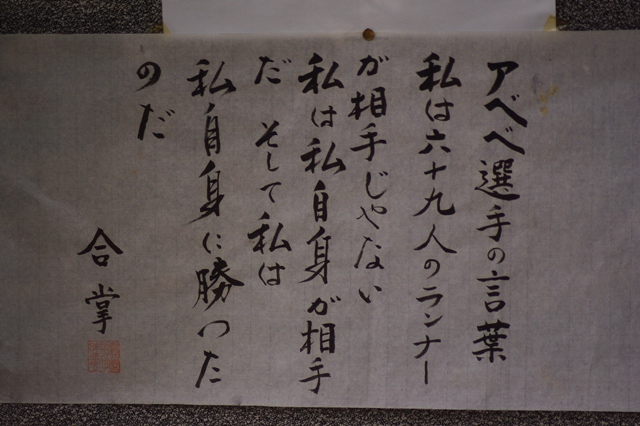 アベベ選手の言葉
私は六十九人のランナー
が相手じゃない
私は私自身が相手
だ そして私は
私自身に勝つた
のだ
合掌